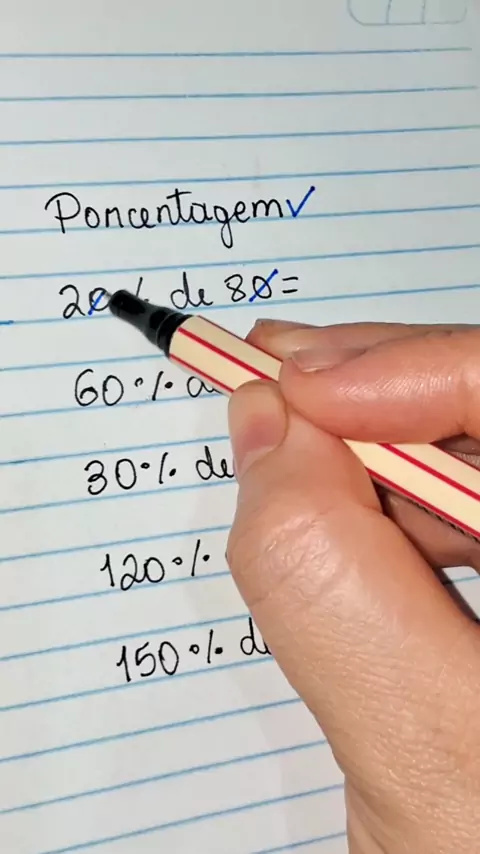 Porcentagem✓
20% de 80=
60%
30% de
120%
150%